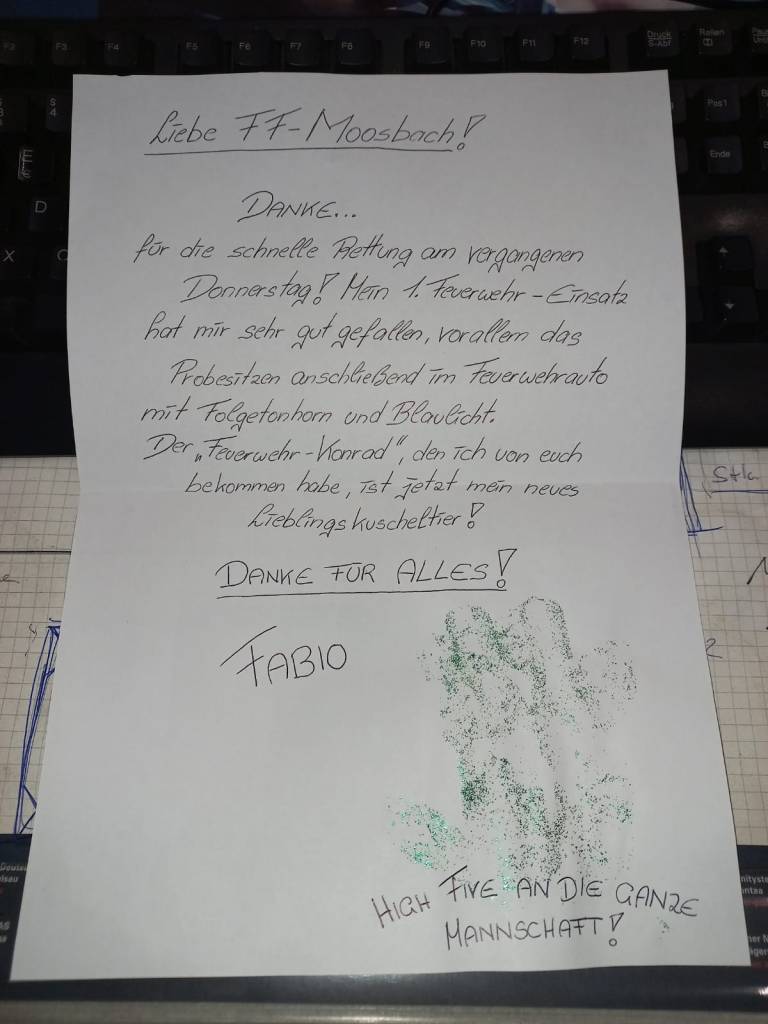 F2 F3 F4 F5 F6 F7 F8 F9 F10 F11 F12 Druck S-Abf Rollen
Liebe FF-Moosbach!
DANKE...
für die schnelle Rettung am vergangenen
Donnerstag! Mein 1. Feuerwehr-Einsatz
hat mir sehr gut gefallen, vorallem das
Probesitzen anschließend im Feuerwehrauto
mit Folgetonhorn und Blaulicht.
Der „Feuerwehr-Konrad“, den ich von euch
bekommen habe, ist jetzt mein neues
Lieblingskuscheltier!
DANKE FÜR ALLES!
FABIO
HIGH FIVE AN DIE GANZE
MANNSCHAFT!
Pos1
Ende
$
4
D
X